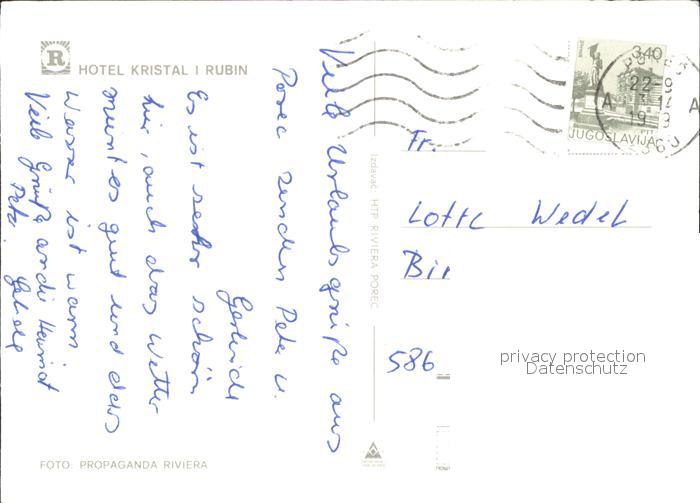 R
HOTEL KRISTAL I RUBIN
Viele Urlaubsgrüße aus
Porec senden Peter u.
Gerlinde
Es ist sehr schön
hier, auch das Wetter
meint es gut und das
Wasser ist warm
Viele Grüße an die Heimat
Peter
FOTO: PROPAGANDA RIVIERA
Izdavač: HTP RIVIERA POREC
3,40
JUGOSLAVIJA
22-9
A A
Fr.
Lotte Wedel
Bir
586
privacy protection
Datenschutz